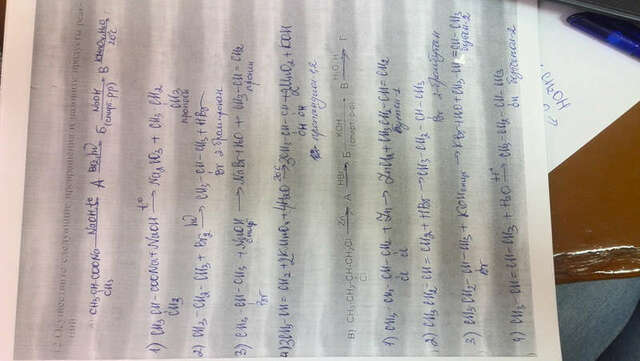 2. Осуществите следующие превращения и назовите продукты реак-
ций
CH₃-CH-COONa NaOH, t° → А Br₂, hν → Б NaOH (спирт. р-р) → В KMnO₄, H₂O 20°C →
CH₃
1) CH₃-CH-COONa + NaOH t° → Na₂CO₃ + CH₃-CH₂
CH₃ CH₃
пропан
2) CH₃-CH₂-CH₃ + Br₂ hν → CH₃-CH-CH₃ + HBr
Br 2-бромпропан
3) CH₃-CH-CH₃ + NaOH → NaBr + H₂O + CH₃-CH=CH₂
Br спирт пропен
4) 3CH₃-CH=CH₂ + 2KMnO₄ + 4H₂O 20°C → 3CH₃-CH-CH₂ + 2MnO₂ + KOH
OH OH
пропандиол-1,2
в) CH₃-CH₂-CH-CH₂Cl Zn → А HBr → Б KOH (спирт. р-р) → В HOH → Г
Cl
1) CH₃-CH₂-CH-CH₂ + Zn → ZnCl₂ + CH₃CH₂-CH=CH₂
Cl Cl бутен-1
2) CH₃CH₂-CH=CH₂ + HBr → CH₃-CH₂-CH-CH₃
Br 2-бромбутан
3) CH₃CH₂-CH-CH₃ + KOH спирт → KBr + H₂O + CH₃-CH=CH-CH₃
Br бутен-2
4) CH₃-CH=CH-CH₃ + H₂O H⁺ → CH₃-CH₂-CH-CH₃
OH бутанол-2